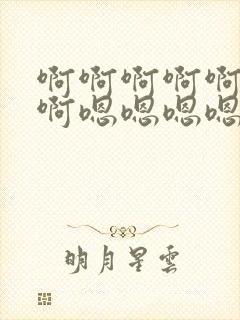 啊啊啊啊啊
啊嗯嗯嗯嗯
明月星雲